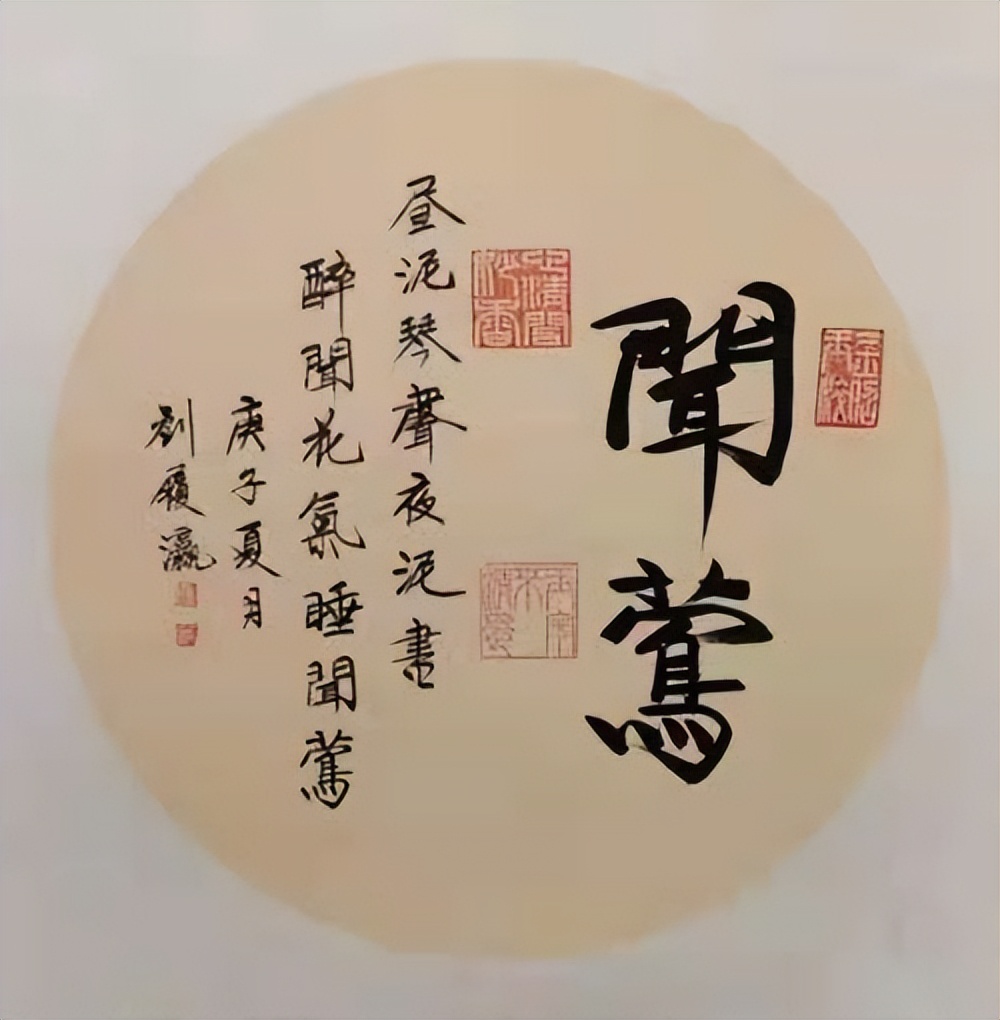 聞鶯
昼泥琴聲夜泥書
醉聞花氣睡聞鶯
庚子夏月
劉履瀛